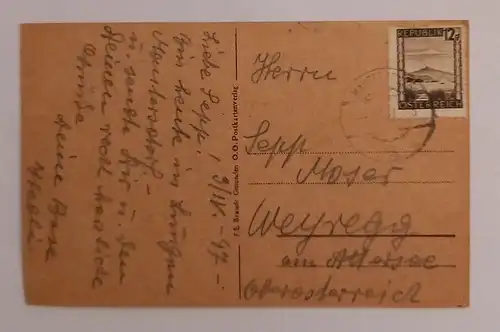 Liebe Sepp! 3/IV.-47-
Bin heute im Lungau
Mauterndorf -
u. sende Dir u. den
deinen recht herzliche
Grüße
deine Base
F. E. Brandt Gmunden O. O. Postkartenverlag
REPUBLIK 12g
ÖSTERREICH
Herrn
Sepp
Moser
Weyregg
am Attersee
Oberösterreich